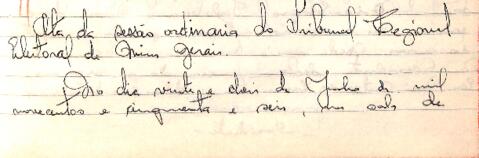 Ata da sessão ordinaria do Tribunal Regional
Eleitoral de Minas Gerais.
Ao dia vinte e dois de Junho de mil
novecentos e cinquenta e seis, na sala de